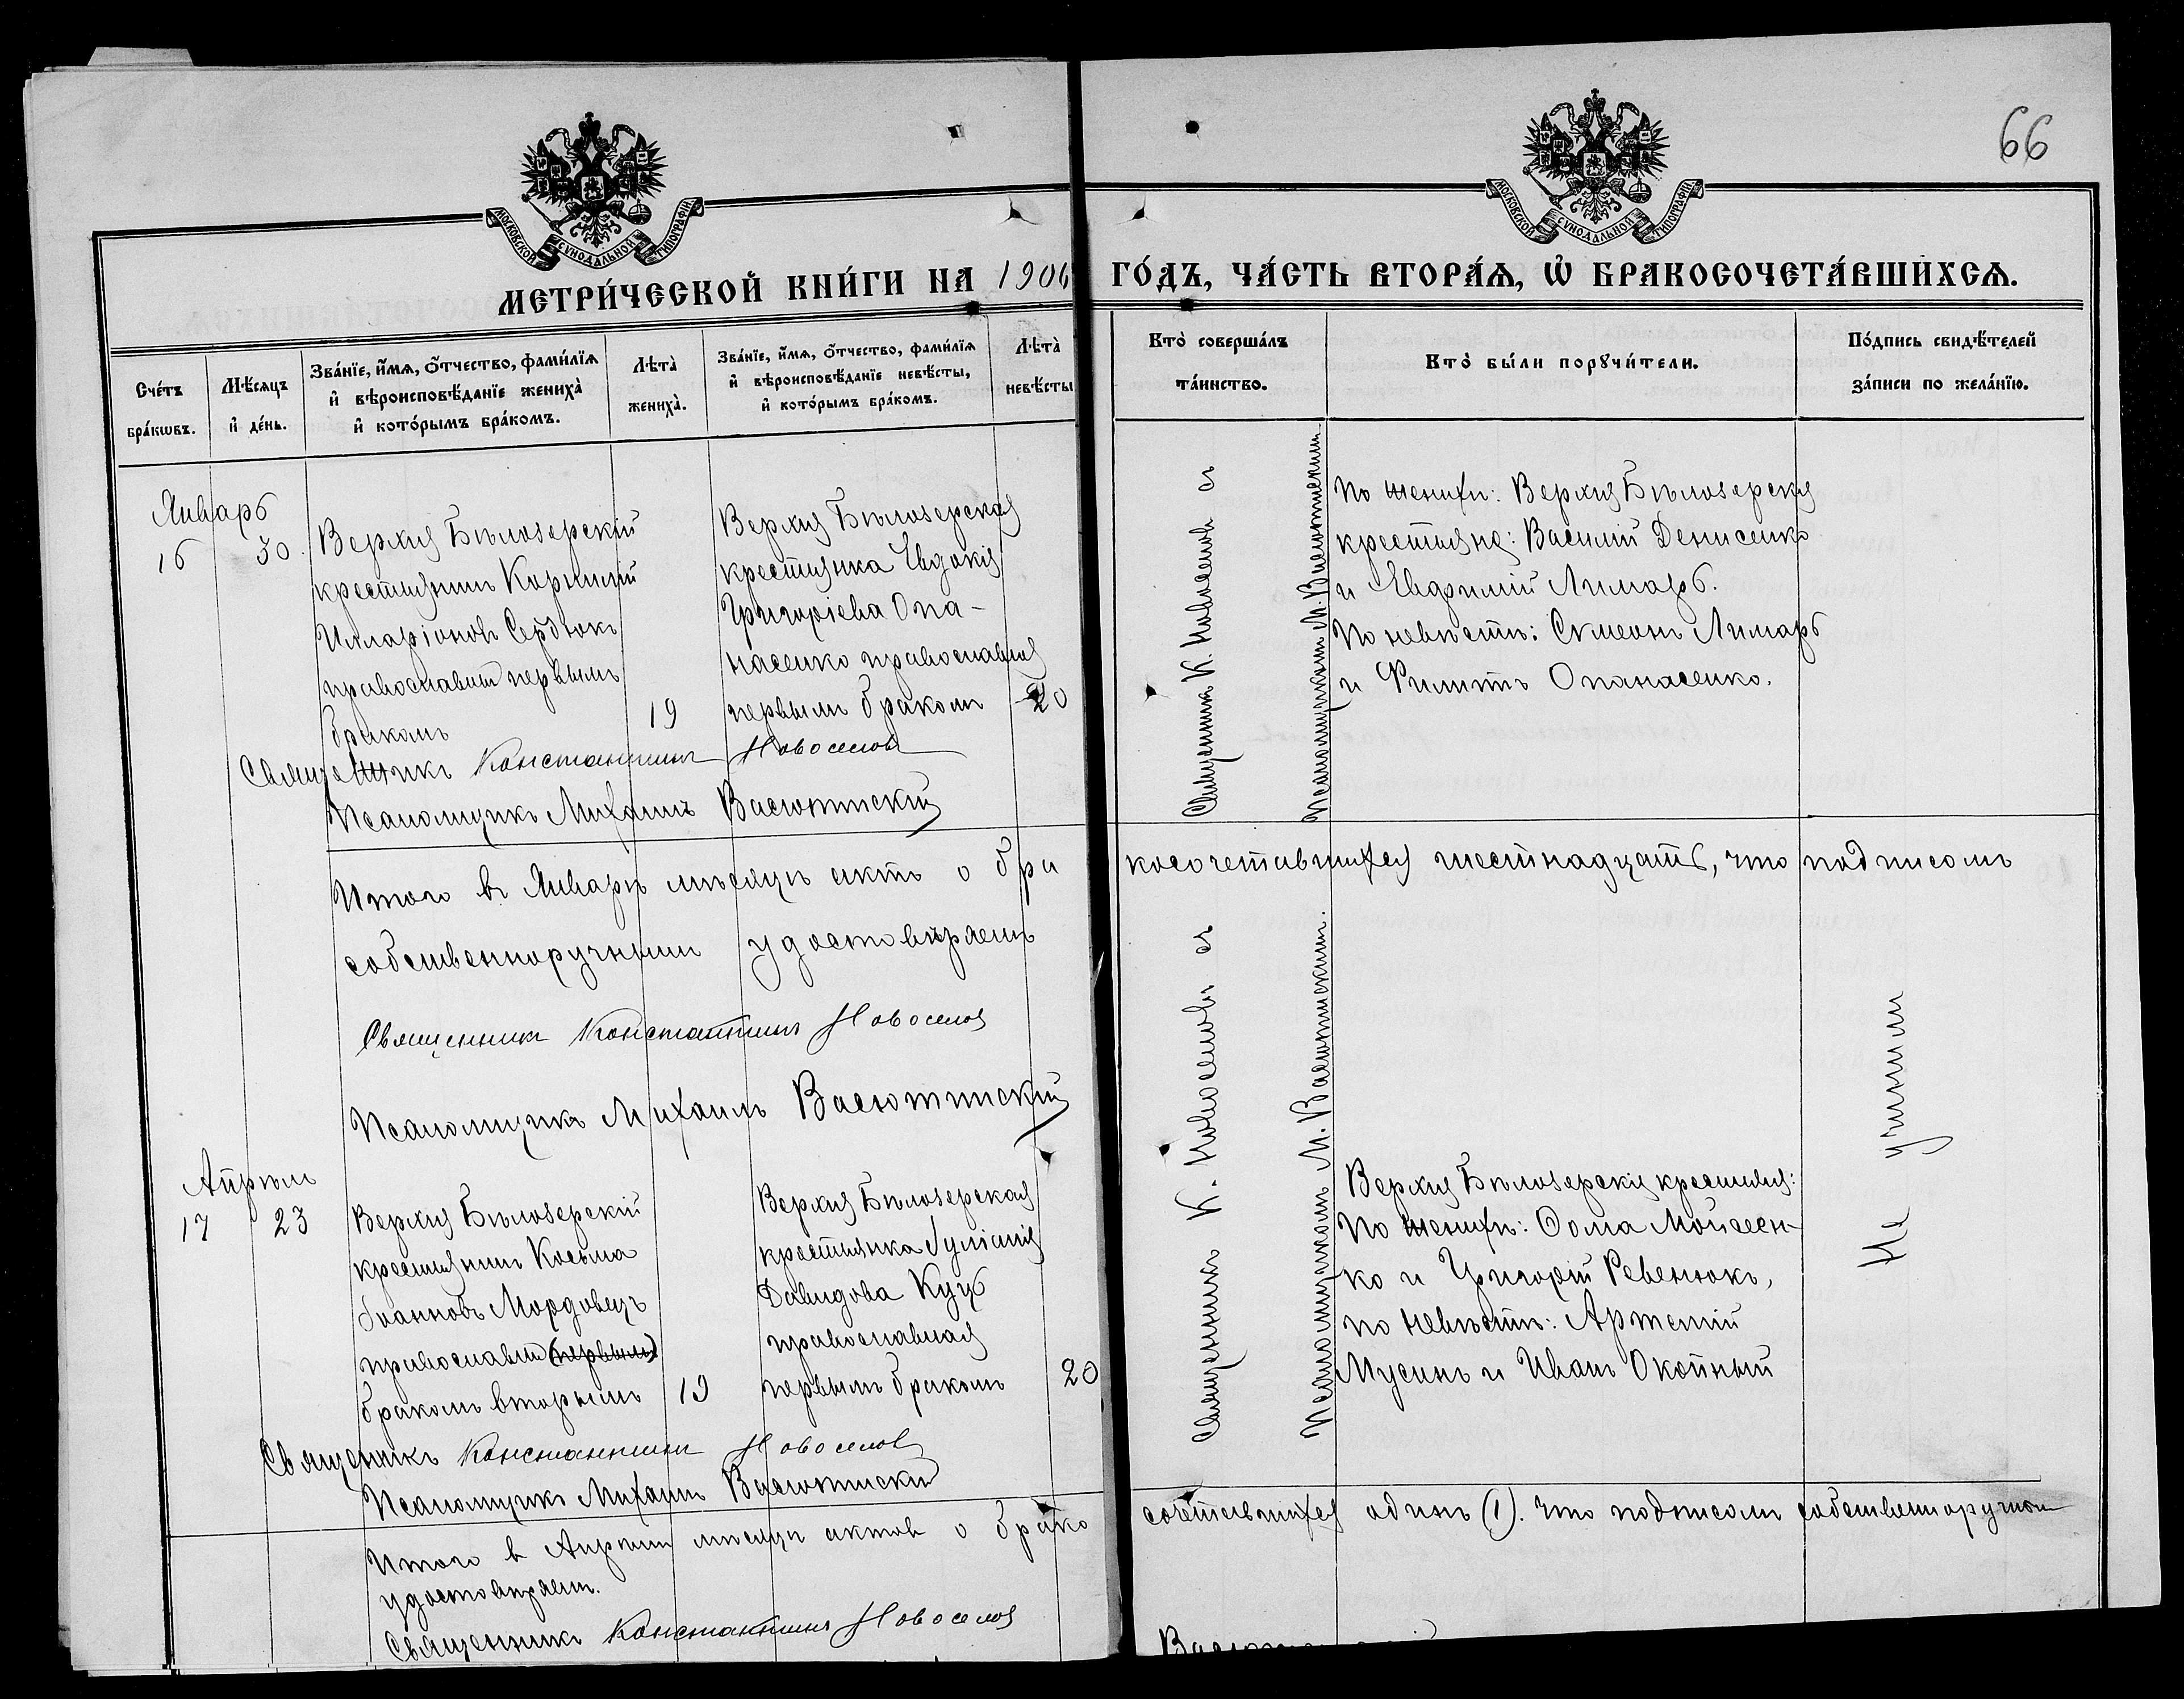 66
МОСКОВСКОЙ СѴНОДАЛЬНОЙ ТИПОГРАФІИ
МОСКОВСКОЙ СѴНОДАЛЬНОЙ ТИПОГРАФІИ
МЕТРИ́ЧЕСКОЙ КНИ́ГИ НА 1906 ГО́ДЪ, ЧА́СТЬ ВТОРА́Я, Ѡ҆ БРАКОСОЧЕТА́ВШИХСЯ.
Сче́тъ бра́кѡвъ.
Мѣ́сяцъ и҆ де́нь.
Зва́нїе, и҆́мѧ, ѻ҆́тчество, фами́лїѧ и҆ вѣроисповѣ́данїе жениха̀ и҆ кото́рымъ бра́комъ.
Лѣта̀ жениха̀.
Зва́нїе, и҆́мѧ, ѻ҆́тчество, фами́лїѧ и҆ вѣроисповѣ́данїе невѣ́сты, и҆ кото́рымъ бра́комъ.
Лѣта̀ невѣ́сты
Кто̀ соверша́лъ та́инство.
Кто̀ бы́ли порꙋчи́тели.
По́дпись свидѣ́телей за́писи по жела́нїю.
Январь
16 30.
Верхня Бѣлозерскій
крестьянинъ Корнилій
Илларіоновъ Сердюкъ
православн первымъ
бракомъ
19
Верхня Бѣлозерская
крестьянка Евдокія
Григоріева Опа-
насенко православная
первымъ бракомъ
20
Священникъ К. Новоселовъ
Псаломщикъ М. Васютинскій
По женихѣ: Верхня Бѣлозерскія
крестьяне: Василій Денисенко
и Евфимій Лимарь.
По невѣстѣ: Симеонъ Лимарь
и Филиппъ Опанасенко.
Священникъ Константинъ Новоселовъ
Псаломщикъ Михаилъ Васютинскій
Итого въ Январѣ мѣсяцѣ актъ о бра
косочетавшихся шестнадцать, что подписомъ
собственноручнымъ удостовѣряемъ
Священникъ Константинъ Новоселовъ
Псаломщикъ Михаилъ Васютинскій
Апрѣль
17 23
Верхня Бѣлозерскій
крестьянинъ Косьма
Іоанновъ Мордовецъ
православн (первымъ)
бракомъ вторымъ
19
Верхня Бѣлозерская
крестьянка Іуліанія
Давидова Куць
православная
первымъ бракомъ
20
Священникъ К. Новоселовъ
Псаломщикъ М. Васютинскій.
Верхня Бѣлозерскія крестьяня:
По женихѣ: Ѳома Мойсеен-
ко и Григорій Ревенюкъ,
по невѣстѣ: Артемій
Мусинъ и Иванъ Окойный
Не учинили
Священникъ Константинъ Новоселовъ
Псаломщикъ Михаилъ Васютинскій
Итого въ Апрѣлѣ мѣсяцѣ актовъ о брако
сочетавшихся одинъ (1). что подписомъ собственноручнымъ
удостовѣряемъ.
Священникъ Константинъ Новоселовъ